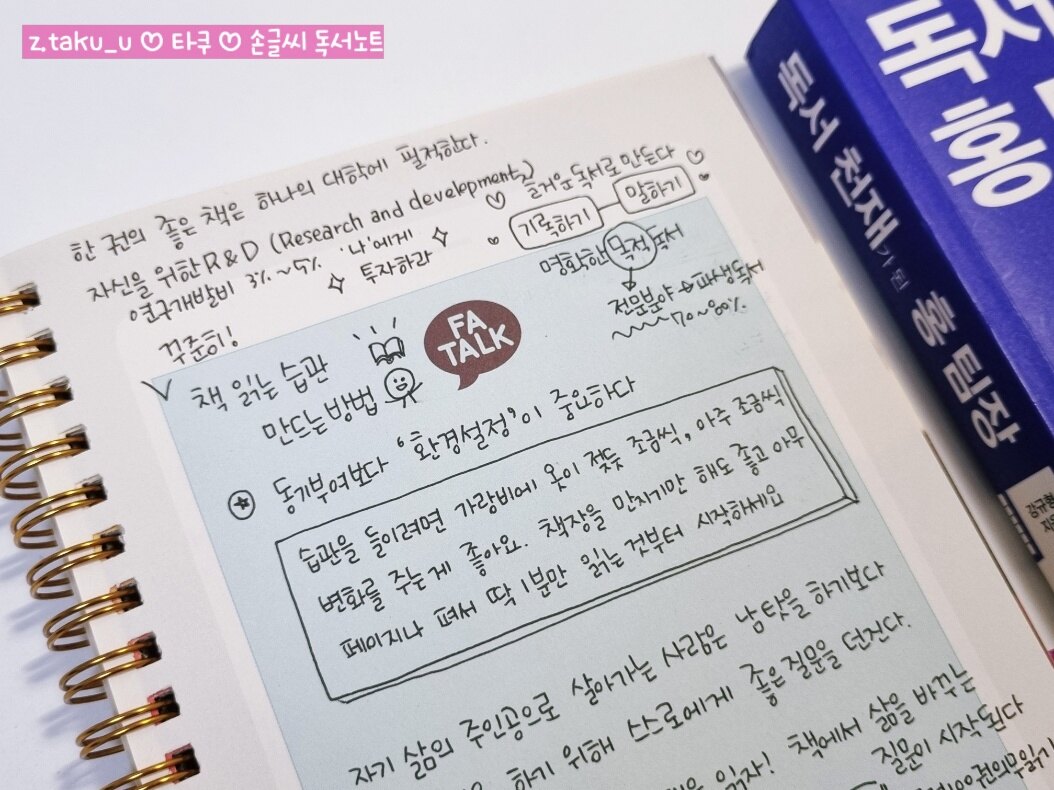 z.taku_u ♡ 타쿠 ♡ 손글씨 독서노트
한 권의 좋은 책은 하나의 대학에 필적한다.
자신을 위한 R&D (Research and development)
연구개발비 3%~5% '나'에게
투자하라
꾸준히!
즐거운 독서로 만든다
기록하기 말하기
명확한 목적 독서
전문분야 → 파생독서
70~80%
책 읽는 습관
만드는 방법
FA
TALK
동기부여보다 '환경설정'이 중요하다
습관을 들이려면 가랑비에 옷이 젖듯 조금씩, 아주 조금씩
변화를 주는게 좋아요. 책장을 만지기만 해도 좋고 아무
페이지나 펴서 딱 1분만 읽는 것부터 시작하세요
자기 삶의 주인공으로 살아가는 사람은 남 탓을 하기보다
하기 위해 스스로에게 좋은 질문을 던진다.
읽자! 책에서 삶을 바꾸는
질문이 시작된다
독서
홍
독서 천재가 된 홍 팀장
강규형